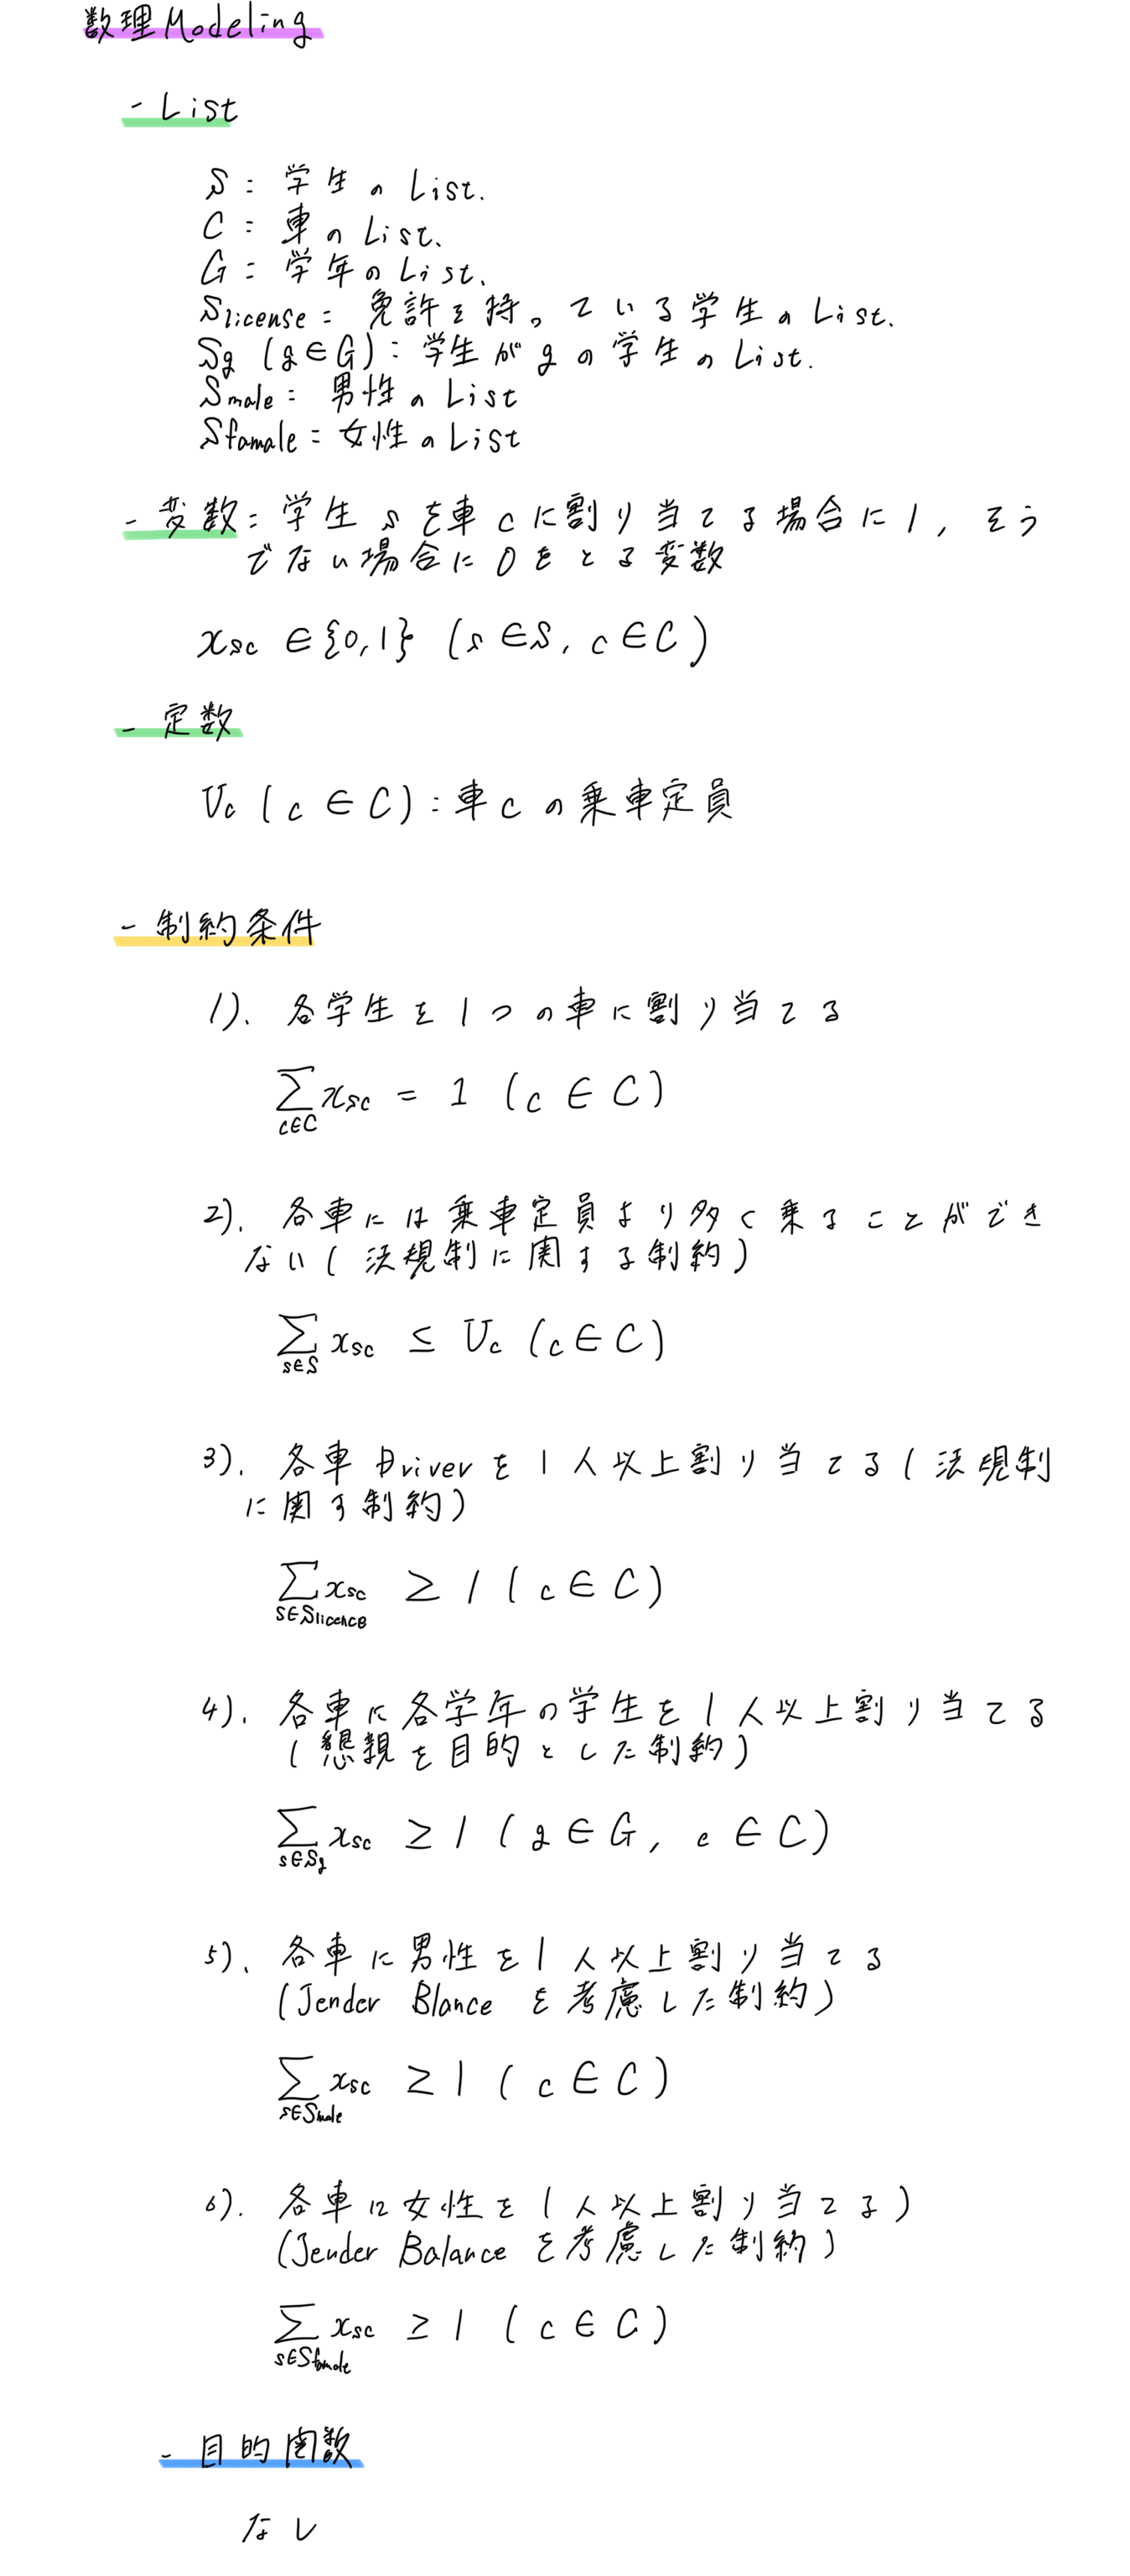 数理Modeling
- List
S: 学生のList.
C: 車のList.
G: 学年のList.
Slicense: 免許を持っている学生のList.
Sg (g∈G): 学生がgの学生のList.
Smale: 男性のList
Sfamale: 女性のList
- 変数: 学生sを車cに割り当てる場合に1, そう
でない場合に0をとる変数
xsc ∈{0,1} (s∈S, c∈C)
- 定数
Uc (c∈C): 車cの乗車定員
- 制約条件
1). 各学生を1つの車に割り当てる
∑ xsc = 1 (c∈C)
c∈C
2). 各車には乗車定員より多く乗ることができ
ない(法規制に関する制約)
∑ xsc ≤ Uc (c∈C)
s∈S
3). 各車Driverを1人以上割り当てる(法規制
に関す制約)
∑ xsc ≥ 1 (c∈C)
s∈Slicence
4). 各車に各学年の学生を1人以上割り当てる
(懇親を目的とした制約)
∑ xsc ≥ 1 (g∈G, c∈C)
s∈Sg
5). 各車に男性を1人以上割り当てる
(Jender Blance を考慮した制約)
∑ xsc ≥ 1 (c∈C)
s∈Smale
6). 各車に女性を1人以上割り当てる)
(Jender Balance を考慮した制約)
∑ xsc ≥ 1 (c∈C)
s∈Sfamale
- 目的関数
なし